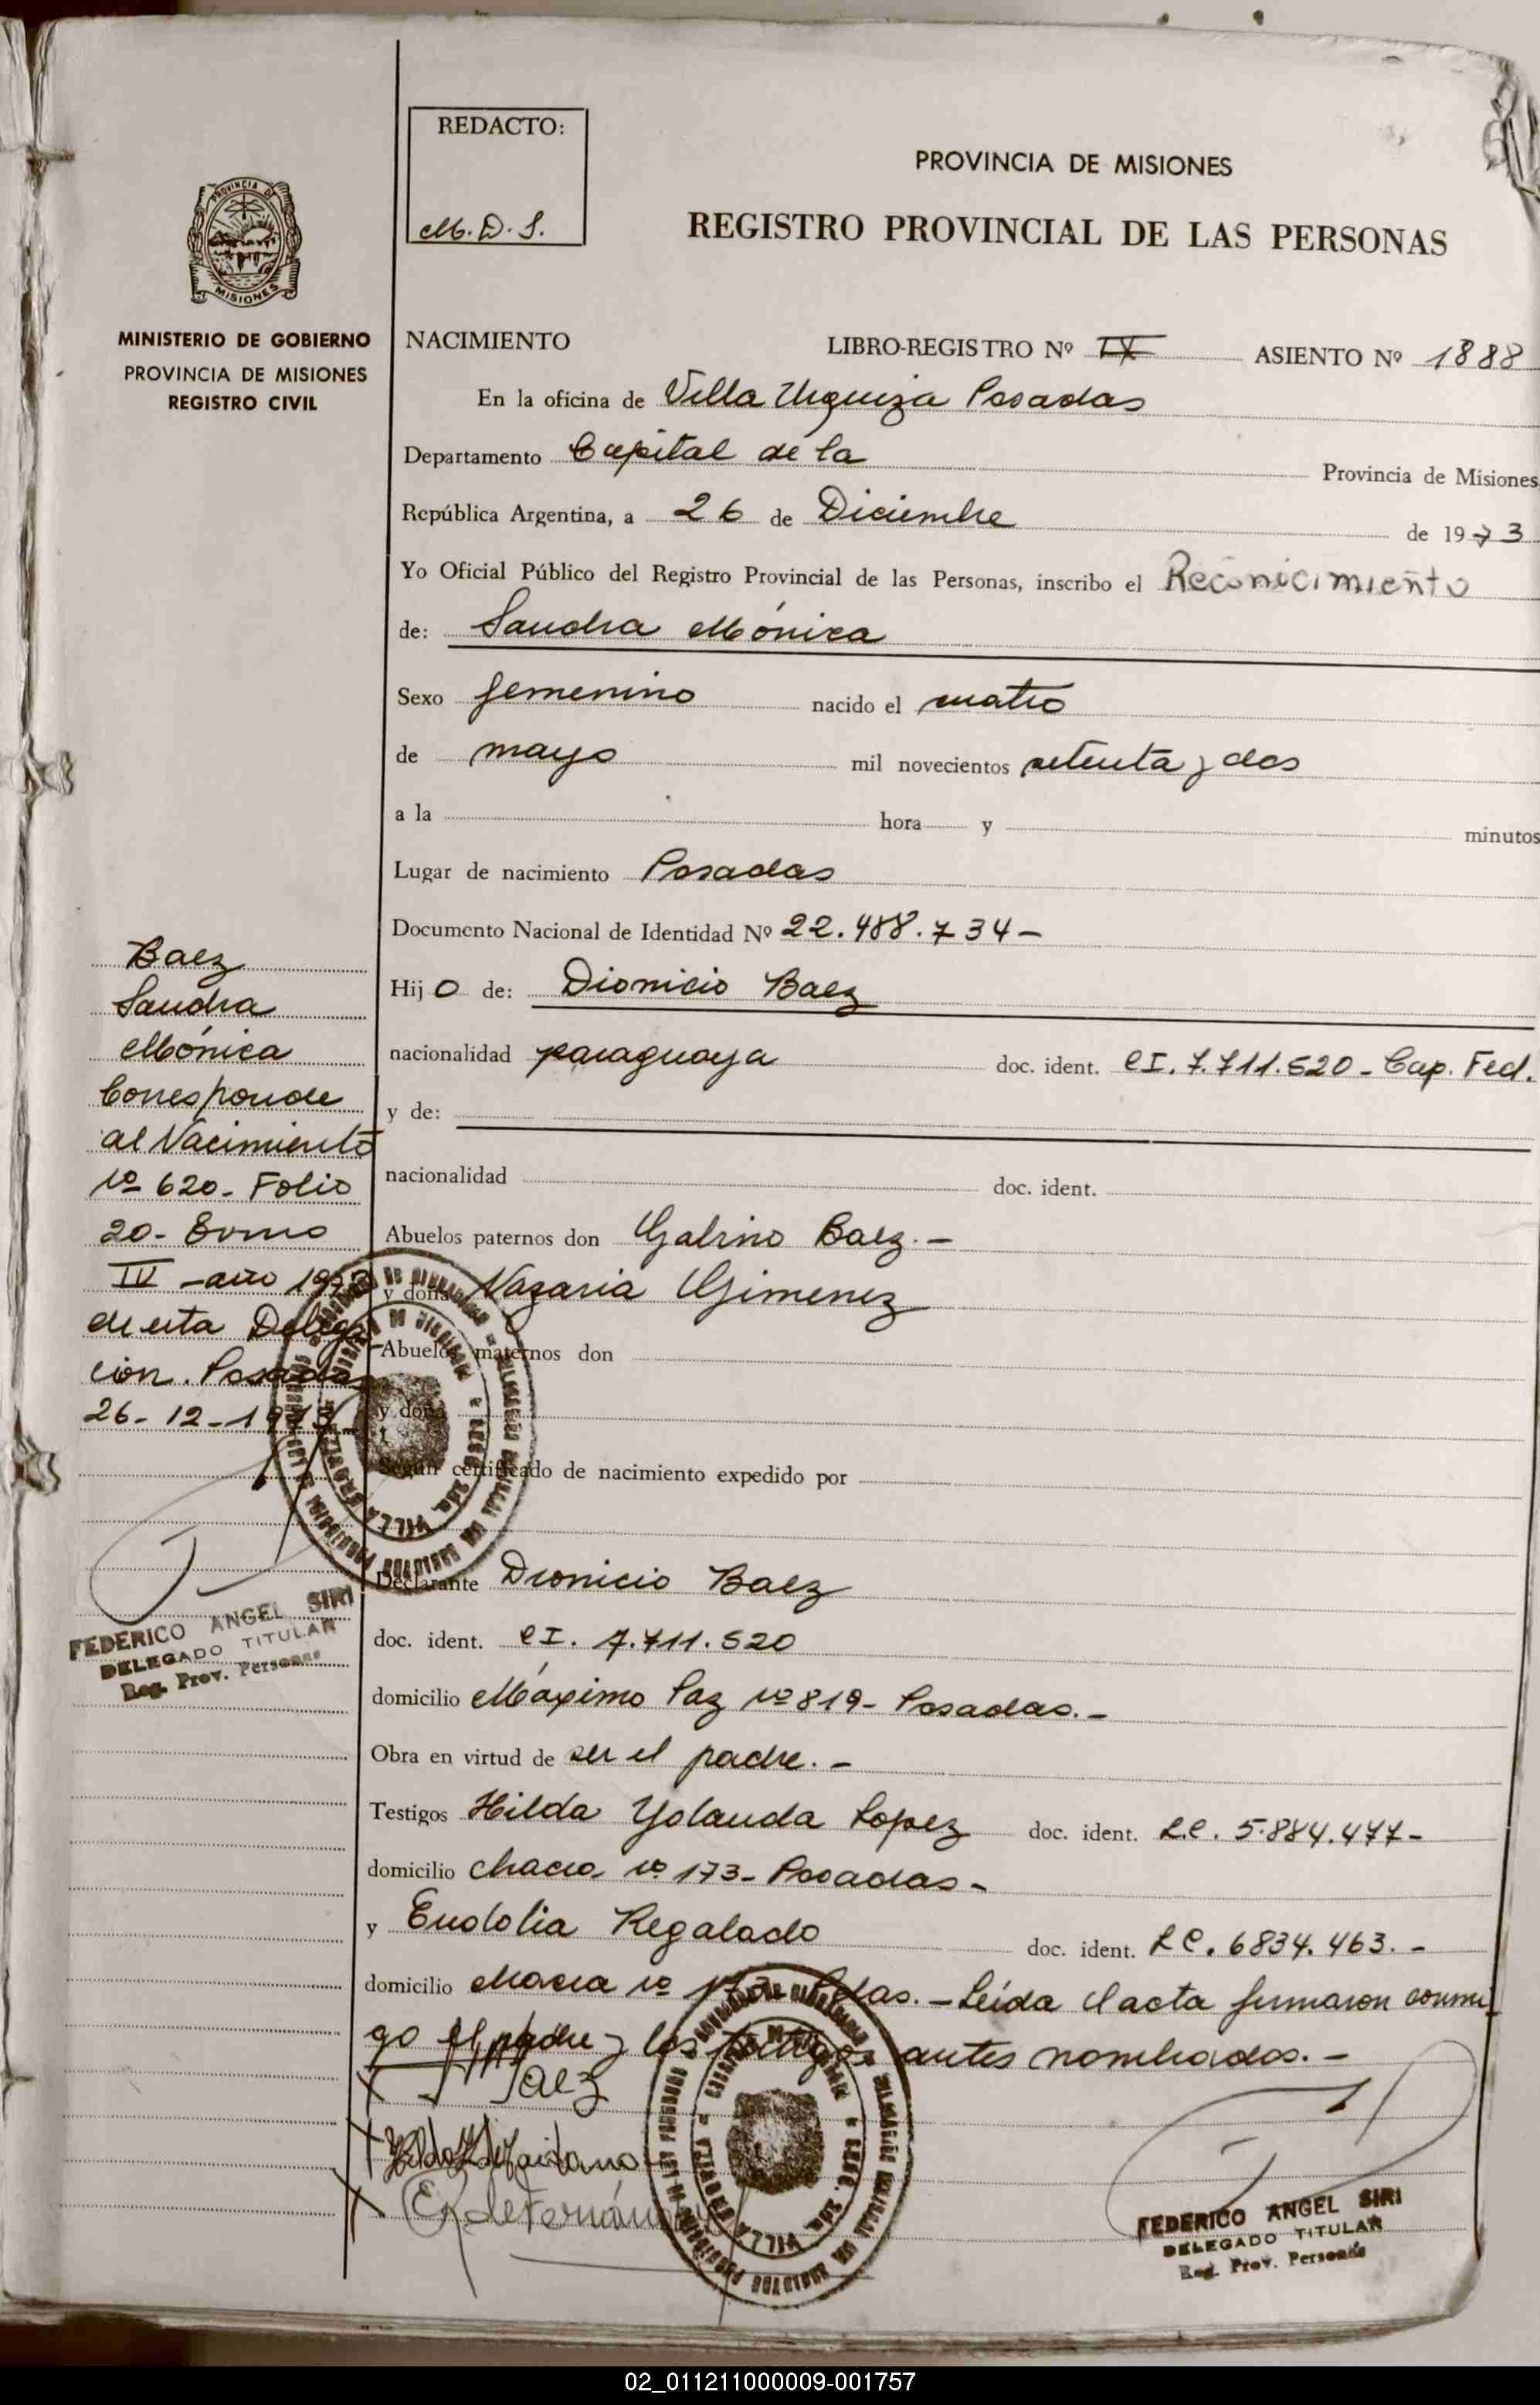 REDACTO:
M. D. S.
PROVINCIA DE MISIONES
REGISTRO PROVINCIAL DE LAS PERSONAS
PROVINCIA DE
MISIONES
MINISTERIO DE GOBIERNO
PROVINCIA DE MISIONES
REGISTRO CIVIL
NACIMIENTO LIBRO-REGISTRO Nº IX ASIENTO Nº 1888
En la oficina de Villa Urquiza Posadas
Departamento Capital de la Provincia de Misiones
República Argentina, a 26 de Diciembre de 1973
Yo Oficial Público del Registro Provincial de las Personas, inscribo el Reconicimiento
de: Sandra Mónica
Sexo femenino nacido el cuatro
de mayo mil novecientos setenta y dos
a la hora y minutos
Lugar de nacimiento Posadas
Documento Nacional de Identidad Nº 22.488.734-
Hijo de: Dionicio Baez
nacionalidad paraguaya doc. ident. CI. 7.711.520 - Cap. Fed.
y de:
nacionalidad doc. ident.
Abuelos paternos don Galvino Baez.-
y doña Nazaria Gimenez
Abuelos maternos don
y doña
Según certificado de nacimiento expedido por
Declarante Dionicio Baez
doc. ident. CI. 7.711.520
domicilio Máximo Paz nº 819- Posadas.-
Obra en virtud de ser el padre.-
Testigos Hilda Yolanda Lopez doc. ident. L.C. 5.884.477-
domicilio chacra nº 173- Posadas-
y Eudolia Regalado doc. ident. LC. 6834.463.-
domicilio chacra nº 173- Pdas.- Leída el acta firmaron conmi-
go el padre y los testigos antes nombrados.-
Baez
E R de Fernández
Baez
Sandra
Mónica
Corresponde
al Nacimiento
nº 620- Folio
20- Tomo
IV -año 1973
de esta Delega-
ción. Posadas
26-12-1973
FEDERICO ANGEL SIRI
DELEGADO TITULAR
Reg. Prov. Personas
FEDERICO ANGEL SIRI
DELEGADO TITULAR
Reg. Prov. Personas
02_011211000009-001757